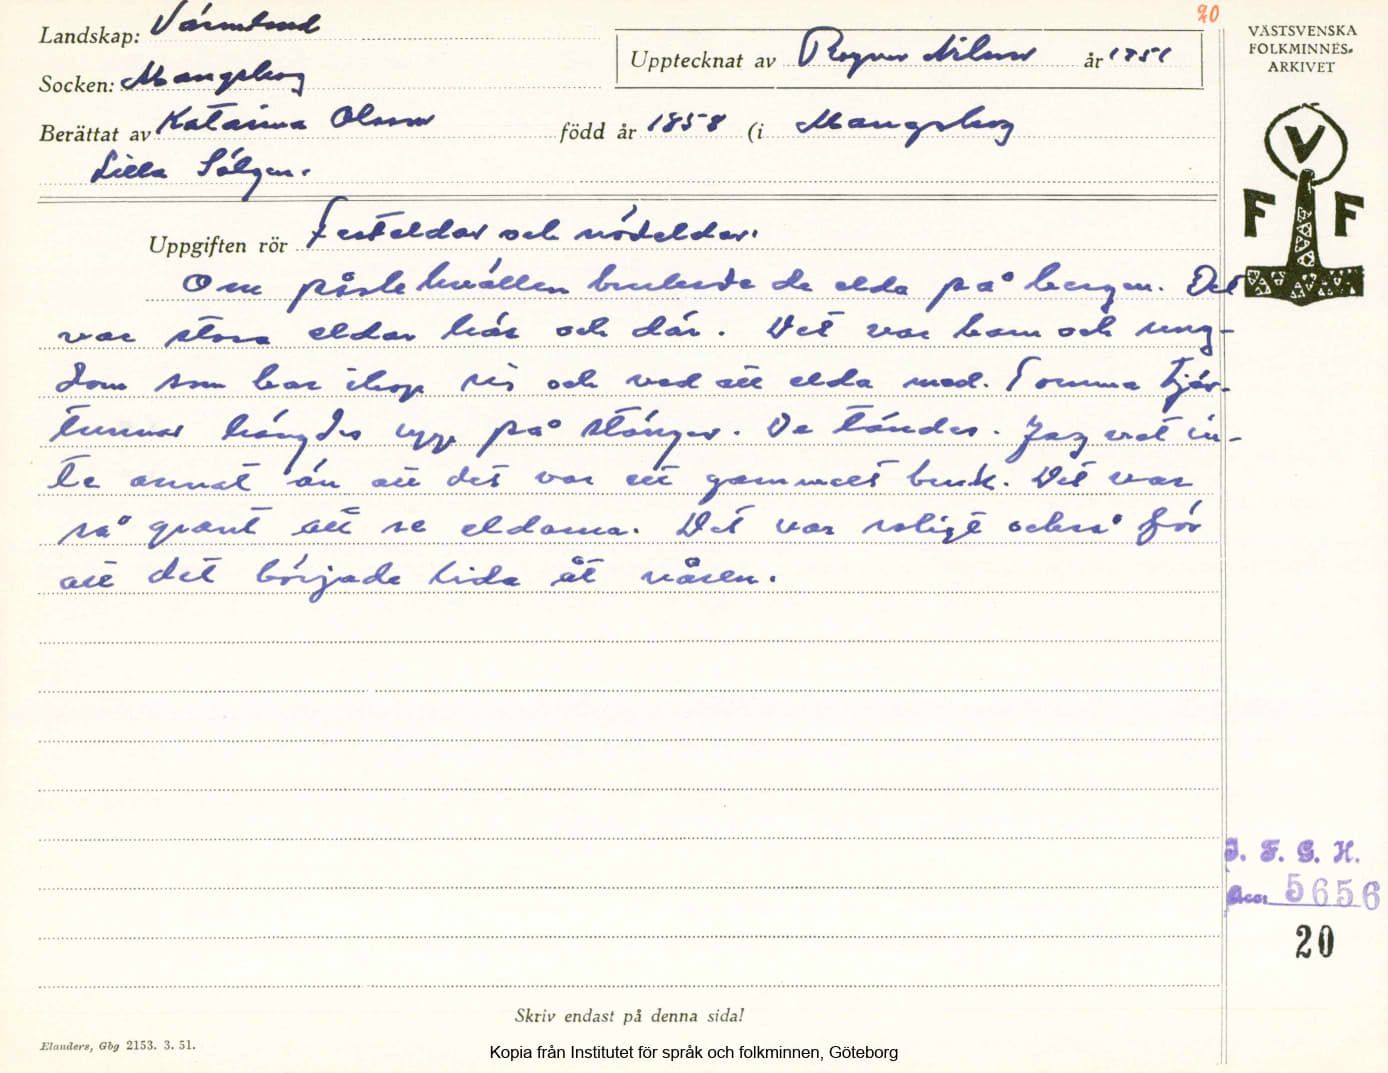 20
Landskap: Värmland
Upptecknat av Ragnar Nilsson år 1951
Socken: Mangskog
Berättat av Katarina Olsson född år 1858 (i Mangskog
Lilla Sälgen.
VÄSTSVENSKA
FOLKMINNES-
ARKIVET
V
F F
Uppgiften rör Festeldar och nödeldar.
Om påskkwällen brukade de elda på bergen. Det
var stora eldar här och där. Det var barn och ung-
dom som bar ihop ris och ved att elda med. Tomma tjär-
tunnor hängdes upp på stänger. De tändes. Jag vet in-
te annat än att det var ett gammalt bruk. Det var
så grant att se eldarna. Det var roligt också för
att det började lida åt våren.
I. F. G. H.
Acc. 5656
20
Skriv endast på denna sida!
Elanders, Gbg 2153. 3. 51.
Kopia från Institutet för språk och folkminnen, Göteborg